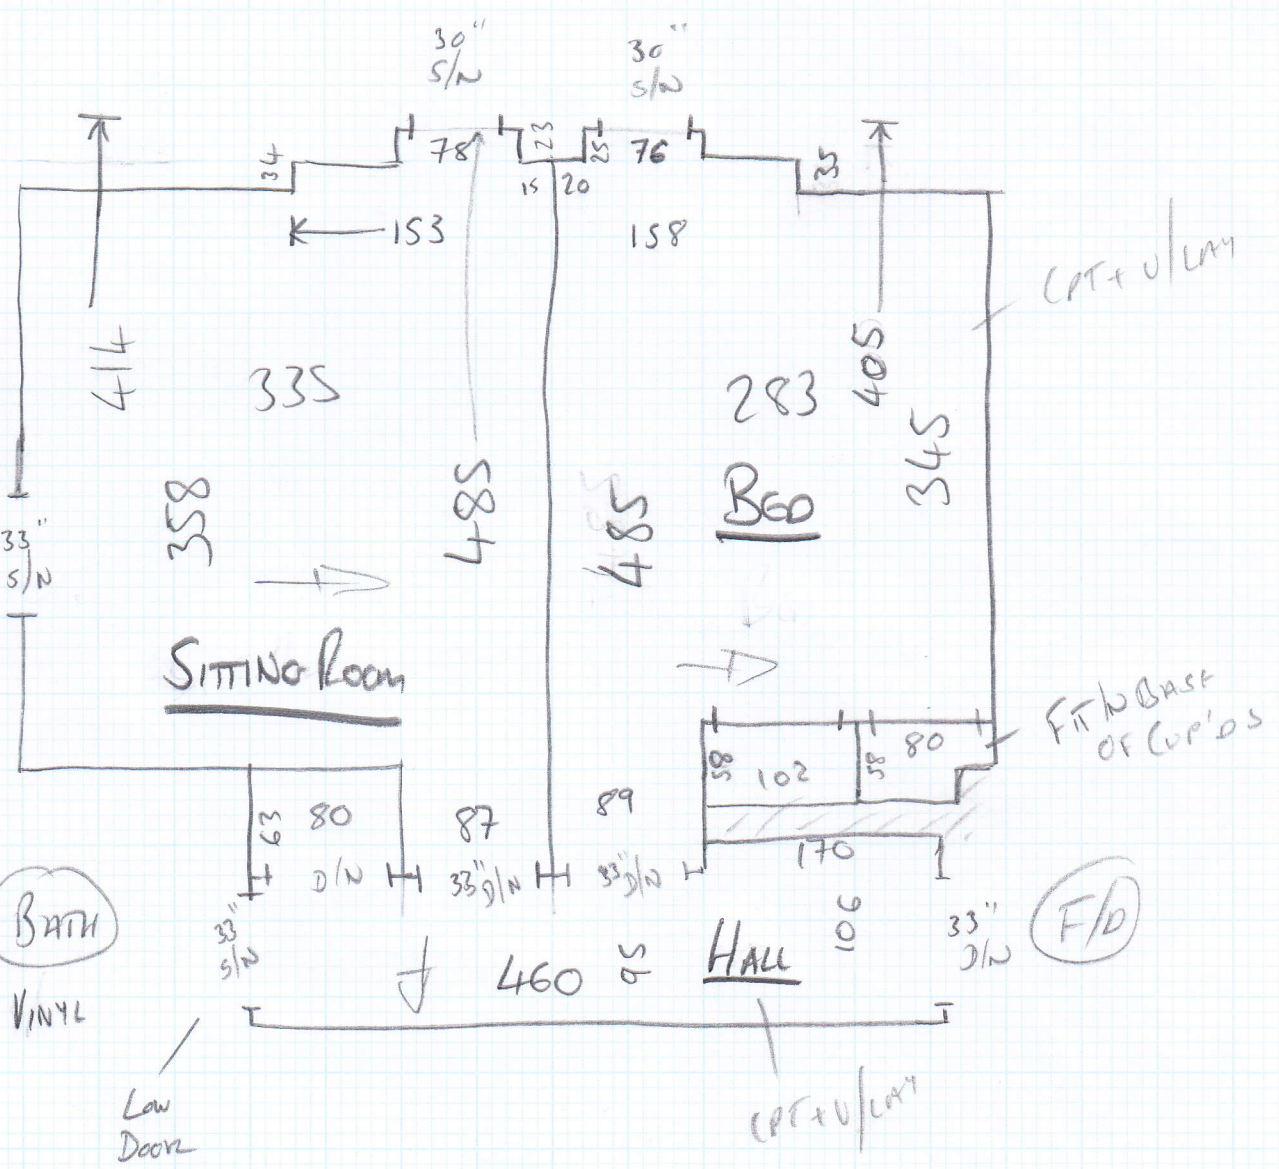 30"
S/N
30"
S/N
34
78
23
25
76
35
15
20
153
158
CPT + U/LAY
414
335
283
405
345
358
485
485
BED
33"
S/N
SITTING ROOM
FIT IN BASE
OF CUP'DS
58
102
58
80
63
80
87
89
D/N
33" D/N
33" D/N
170
BATH
VINYL
33"
S/N
460
95
HALL
106
33"
D/N
F/D
LOW
DOOR
CPT + U/LAY